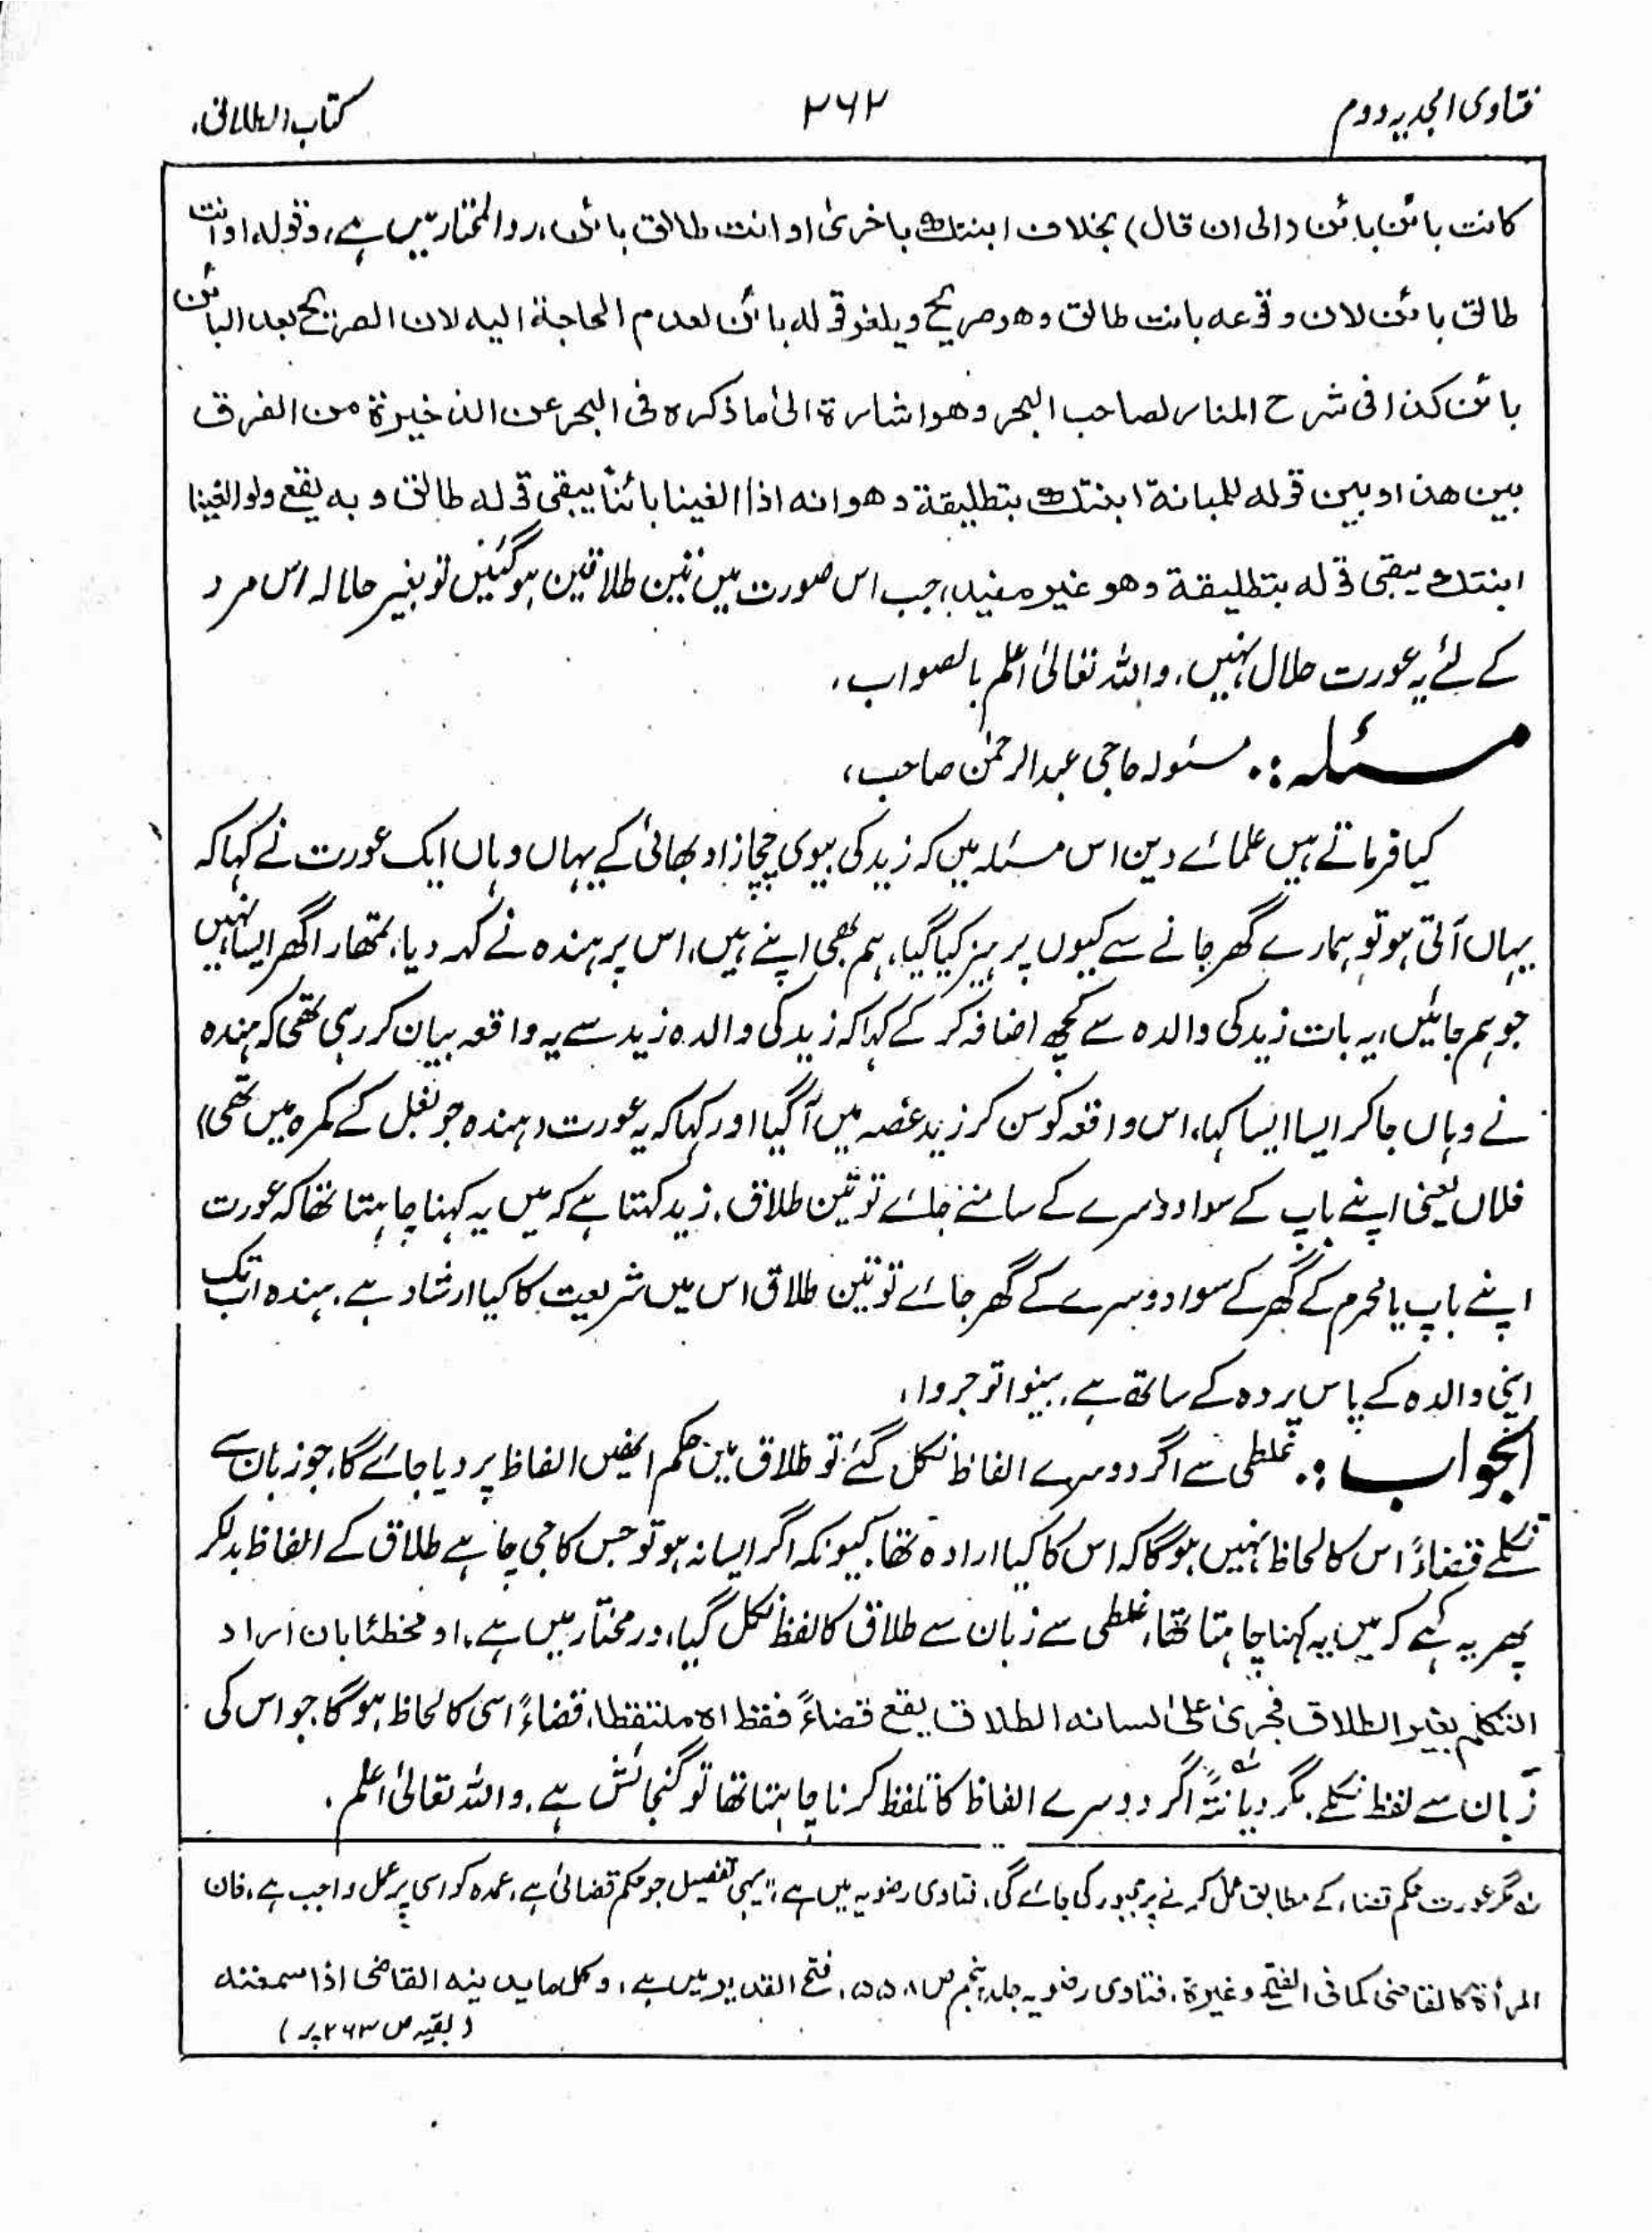 فتاوی امجدیہ دوم
۲۶۲
کتاب الطلاق،
کانت بائن بائن (الی ان قال) بخلاف ابنتک باخریٰ او انت طالق بائن، ردالمحتار میں ہے، وقولہ او انت
طالق بائن لان وقوعہ بانت طالق وھو صریح ویلغو قولہ بائن لعدم الحاجۃ الیہ لان الصریح بعد البائن
بائن کذا فی شرح المنار لصاحب البحر وھو اشارۃ الیٰ ما ذکرہ فی البحر عن الذخیرۃ من الفرق
بین ھذا وبین قولہ للمبانۃ ابنتک بتطلیقۃ وھو انہ اذا الغینا بائناً یبقی قولہ طالق وبہ یقع ولو الغینا
ابنتک یبقی قولہ بتطلیقۃ وھو غیر مفید، جب اس صورت میں تین طلاقیں ہوگئیں تو بغیر حلالہ اس مرد
کے لئے یہ عورت حلال نہیں، واللہ تعالیٰ اعلم بالصواب،
مسئلہ :۔ مسئولہ حاجی عبدالرحمٰن صاحب،
کیا فرماتے ہیں علمائے دین اس مسئلہ میں کہ زید کی بیوی چچازاد بھائی کے یہاں وہاں ایک عورت نے کہا کہ
یہاں آتی ہو تو ہمارے گھر جانے سے کیوں پرہیز کیا گیا، ہم بھی اپنے ہیں، اس پر ہندہ نے کہہ دیا، تمھارا گھر ایسا نہیں
جو ہم جائیں، یہ بات زید کی والدہ سے کچھ اضافہ کر کے کہا کہ زید کی والدہ زید سے یہ واقعہ بیان کر رہی تھی کہ ہندہ
نے وہاں جاکر ایسا ایسا کہا، اس واقعہ کو سن کر زید غصہ میں آگیا اور کہا کہ یہ عورت (ہندہ جو بغل کے کمرہ میں تھی)
فلاں یعنی اپنے باپ کے سوا دوسرے کے سامنے جائے تو تین طلاق، زید کہتا ہے کہ میں یہ کہنا چاہتا تھا کہ عورت
اپنے باپ یا محرم کے گھر کے سوا دوسرے کے گھر جائے تو تین طلاق اس میں شریعت کا کیا ارشاد ہے، ہندہ ابتک
اپنی والدہ کے پاس پردہ کے ساتھ ہے، بینوا توجروا،
الجواب :۔ غلطی سے اگر دوسرے الفاظ نکل گئے تو طلاق میں حکم انھیں الفاظ پر دیا جائے گا، جو زبان سے
نکلے قضاءً اس کا لحاظ نہیں ہوگا کہ اس کا کیا ارادہ تھا، کیونکہ اگر ایسا نہ ہو تو جس کا جی چاہے طلاق کے الفاظ بدلکر
پھر یہ کہے کہ میں یہ کہنا چاہتا تھا، غلطی سے زبان سے طلاق کا لفظ نکل گیا، درمختار میں ہے، او مخطئا بان اراد
التکلم بغیر الطلاق فجریٰ علیٰ لسانہ الطلاق یقع قضاءً فقط اھ ملتقطا، قضاءً اسی کا لحاظ ہوگا جو اس کی
زبان سے لفظ نکلے، مگر دیانتہً اگر دوسرے الفاظ کا تلفظ کرنا چاہتا تھا تو گنجائش ہے، واللہ تعالیٰ اعلم،
مگر عورت حکم قضاء کے مطابق عمل کرنے پر مجبور کی جائے گی، فتاوی رضویہ میں ہے، "یہی تفصیل جو حکم قضائی ہے، عمدہ کو اسی پر عمل واجب ہے، فان
المرأۃ کالقاضی کما فی الفتح وغیرہ، فتاوی رضویہ جلد پنجم ص ۵۵۸، فتح القدیر میں ہے، وکل ما یدینہ القاضی اذا سمعتہ
(بقیہ ص ۲۶۳ پر)